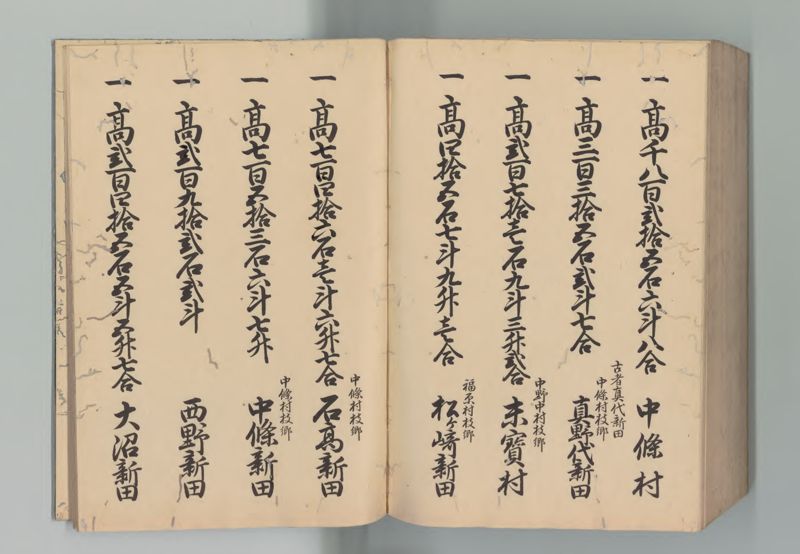 一 高千八百弐拾五石六斗八合 中條村
古者真代新田
中條村枝郷
一 高三百三拾五石弐斗七合 真野代新田
中野中村枝郷
一 高弐百七拾壱石九斗三升弐合 末寳村
福原村枝郷
一 高四拾五石七斗九升壱合 松ヶ﨑新田
中條村枝郷
一 高七百四拾六石壱斗六升七合 石髙新田
中條村枝郷
一 高七百五拾三石六斗七升 中條新田
一 高弐百九拾弐石弐斗 西野新田
一 高弐百四拾五石五斗五升七合 大沼新田